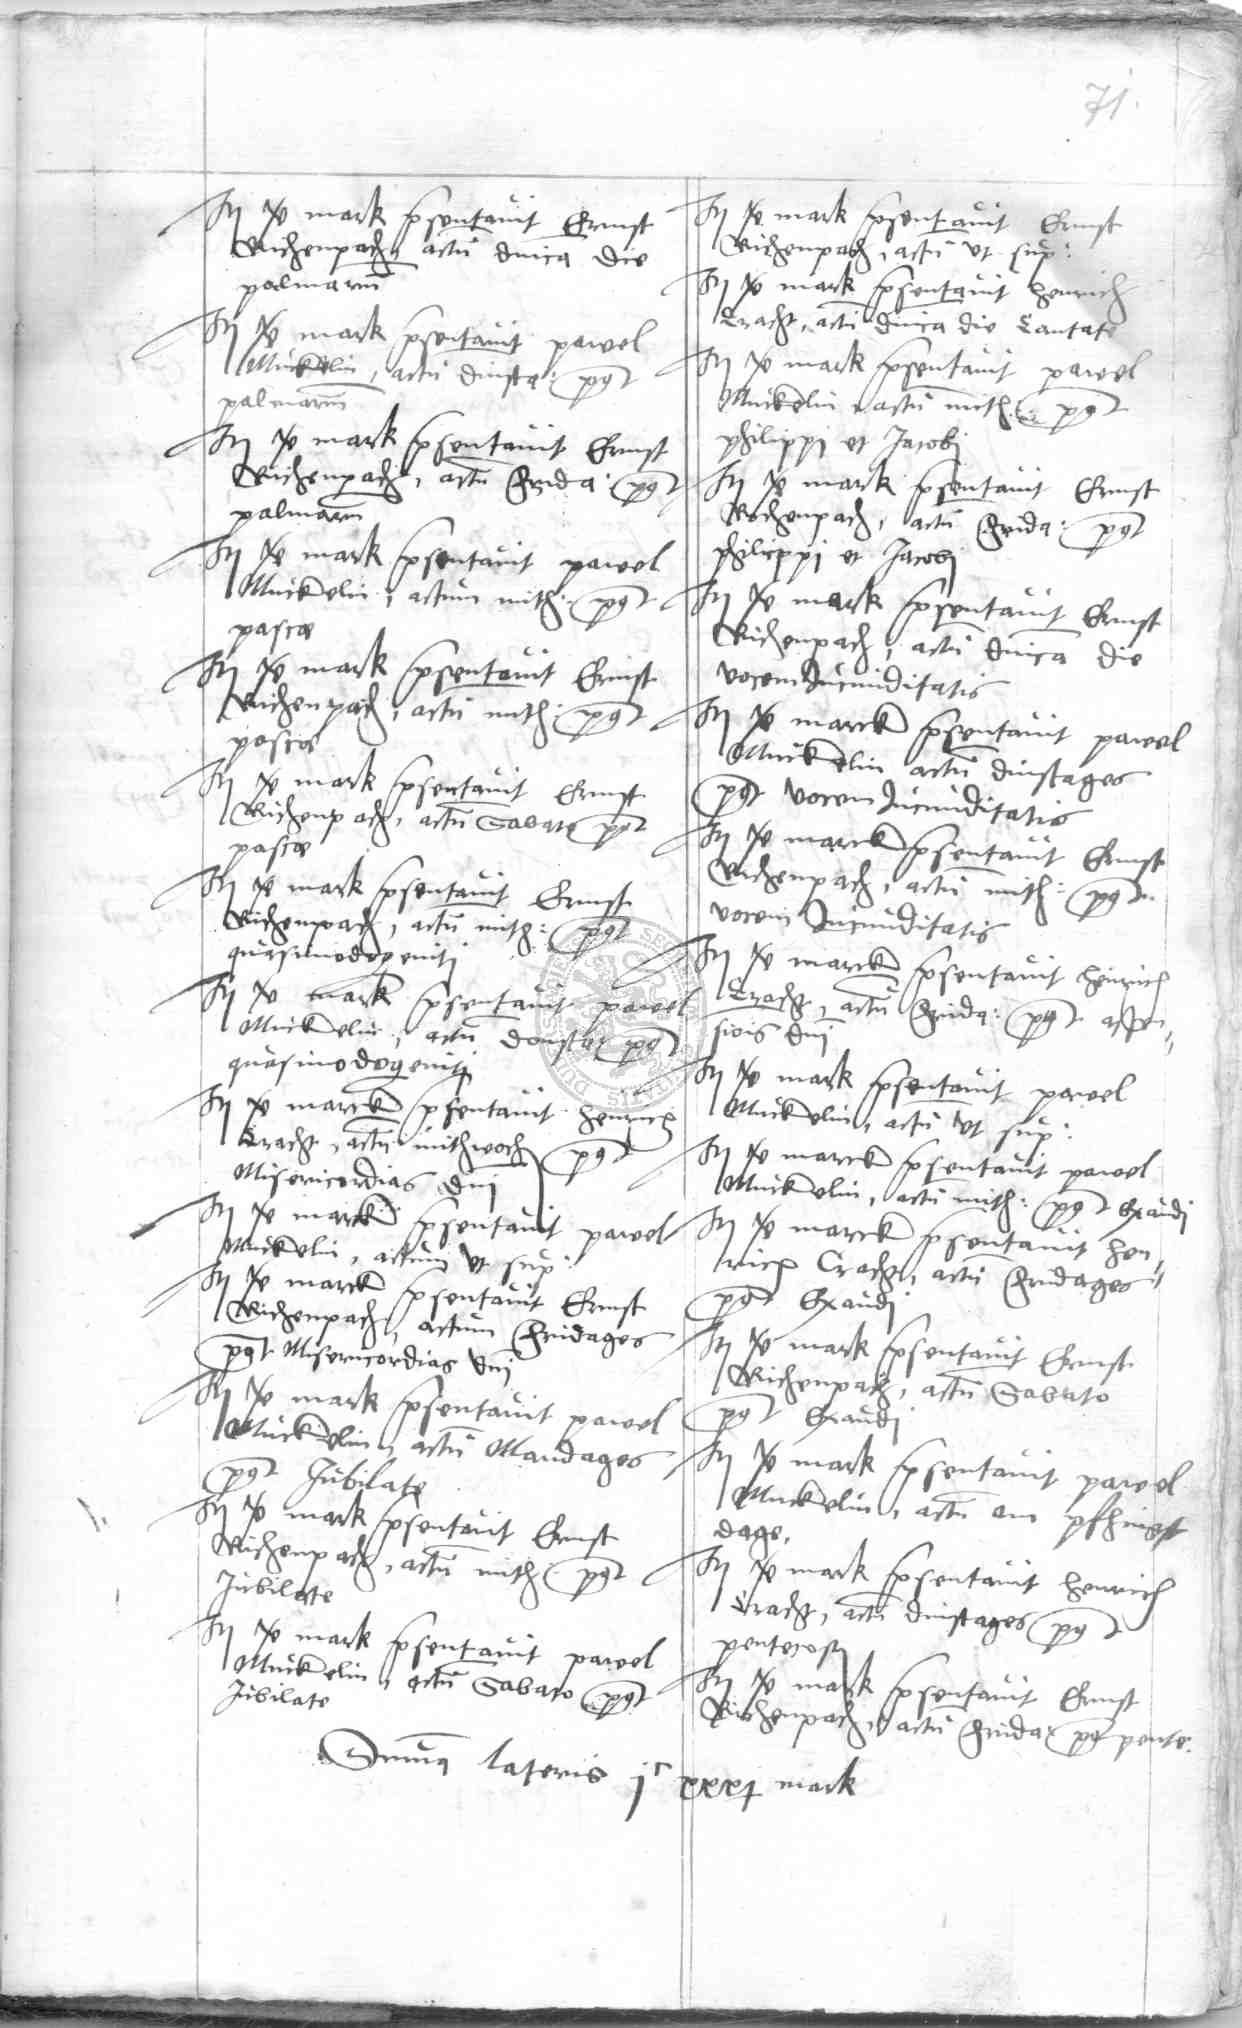 71.
It xe mark psentavit Ernst
Richenpach, actū dnica die
palmarū
It xe mark psentavit pawel
Muckelin, actū dinsta: post
palmarū
It xe mark psentavit Ernst
Richenpach, actū frida: post
palmarū
It xe mark psentavit pawel
Muckelin, actum mith: post
pasce
It xe mark psentavit Ernst
Richenpach, actū mith: post
pasce
It xe mark psentavit Ernst
Richenpach, actū Sabato post
pasce
It xe mark psentavit Ernst
Richenpach, actū mith: post
quasimodogeniti
It xe mark psentavit pawel
Muckelin, actū donsta: post
quasimodogeniti
It xe marck psentavit henrich
Cracht, actū mithwoch post
Misericordias dni
It xe marck psentavit pawel
Muckelin, actum vt sup:
It xe marck psentavit Ernst
Richenpach, actum fridages
post Misericordias dni
It xe mark psentavit pawel
Muckelin, actū Mandages
post Jubilate
It xe mark psentavit Ernst
Richenpach, actū mith: post
Jubilate
It xe mark psentavit pawel
Muckelin, actū Sabato post
Jubilate
It xe mark psentavit Ernst
Richenpach, actū vt sup:
It xe mark psentavit henrich
Cracht, actū dnica die Cantate
It xe mark psentavit pawel
Muckelin, actū mith: post
philippi et Jacobi
It xe mark psentavit Ernst
Richenpach, actū frida: post
philippi et Jacobi
It xe mark psentavit Ernst
Richenpach, actū dnica die
vocem Jucunditatis
It xe marck psentavit pawel
Muckelin actū dinstages
post vocem Jucunditatis
It xe marck psentavit Ernst
Richenpach, actū mith: post
vocem Jucunditatis
It xe marck psentavit henrich
Cracht, actū frida: post assen
siois dni
It xe mark psentavit pawel
Muckelin, actū vt sup:
It xe marck psentavit pawel
Muckelin, actū mith: post Exaudi
It xe marck psentavit hen
rich Cracht, actū fridages
post Exaudi
It xe mark psentavit Ernst
Richenpach, actū Sabato
post Exaudi
It xe mark psentavit pawel
Muckelin, actū am pfhingst
dage,
It xe mark psentavit henrich
Cracht, actū dinstages post
pentecost
It xe mark psentavit Ernst
Richenpach, actū frida: post pente:
Suma lateris jc xxxj mark